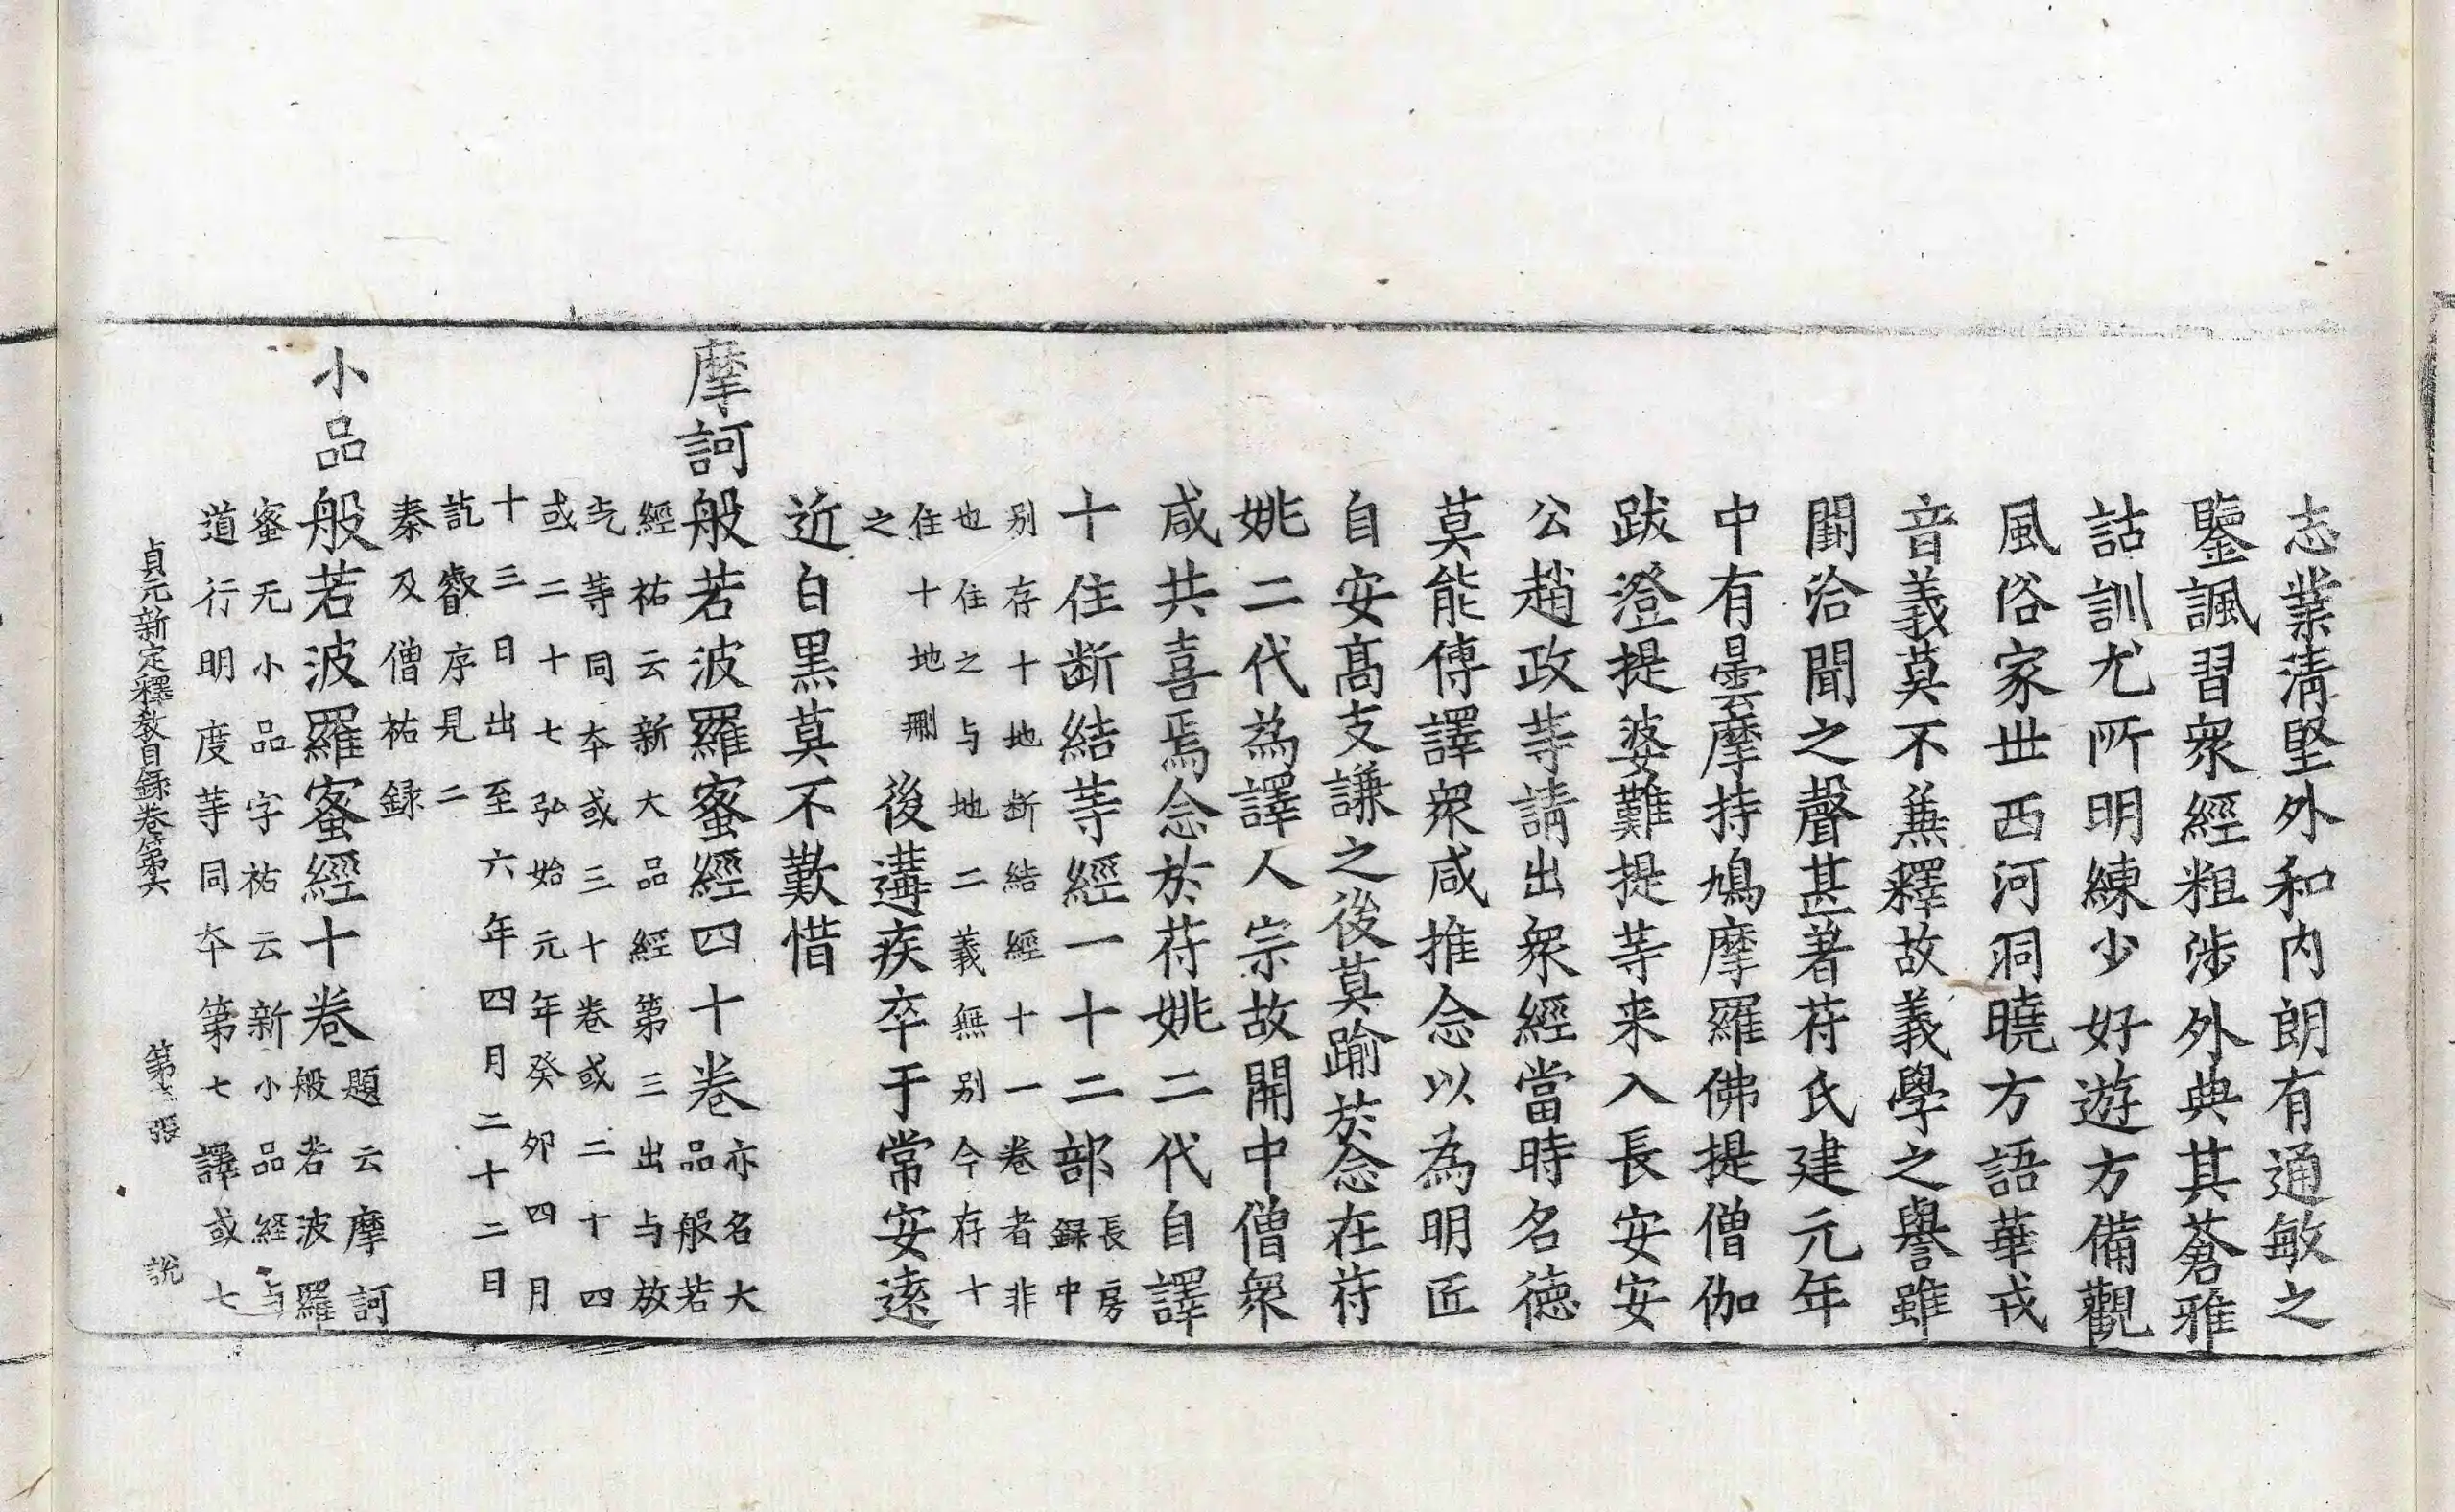 志業淸堅外和內朗有通敏之
鑒諷習衆經粗涉外典其蒼雅
詁訓尤所明練少好遊方備觀
風俗家世西河洞曉方語華戎
音義莫不兼釋故義學之譽雖
闕洽聞之聲甚著苻氏建元年
中有曇摩持鳩摩羅佛提僧伽
跋澄提婆難提等来入長安安
公趙政等請出衆經當時名德
莫能傳譯衆咸推念以為明匠
自安髙支謙之後莫踰於念在苻
姚二代為譯人宗故開中僧衆
咸共喜焉念於苻姚二代自譯
十住断結等經一十二部長房録中
别存十地断結經十一卷者非
也住之与地二義無别今存十
住十地刪
之
後遘疾卒于常安遠
近白黒莫不歎惜
摩訶般若波羅蜜經四十卷亦名大品般若
經祐云新大品經第三出与放
光等同夲或三十卷或二十四
或二十七弘始元年癸夘四月
十三日出至六年四月二十二日
訖叡序見二
秦及僧祐録
小品般若波羅蜜經十卷題云摩訶般若波羅
蜜无小品字祐云新小品経与
道行明度等同夲第七譯或七
貞元新定釋教目録卷第六 第 張 說